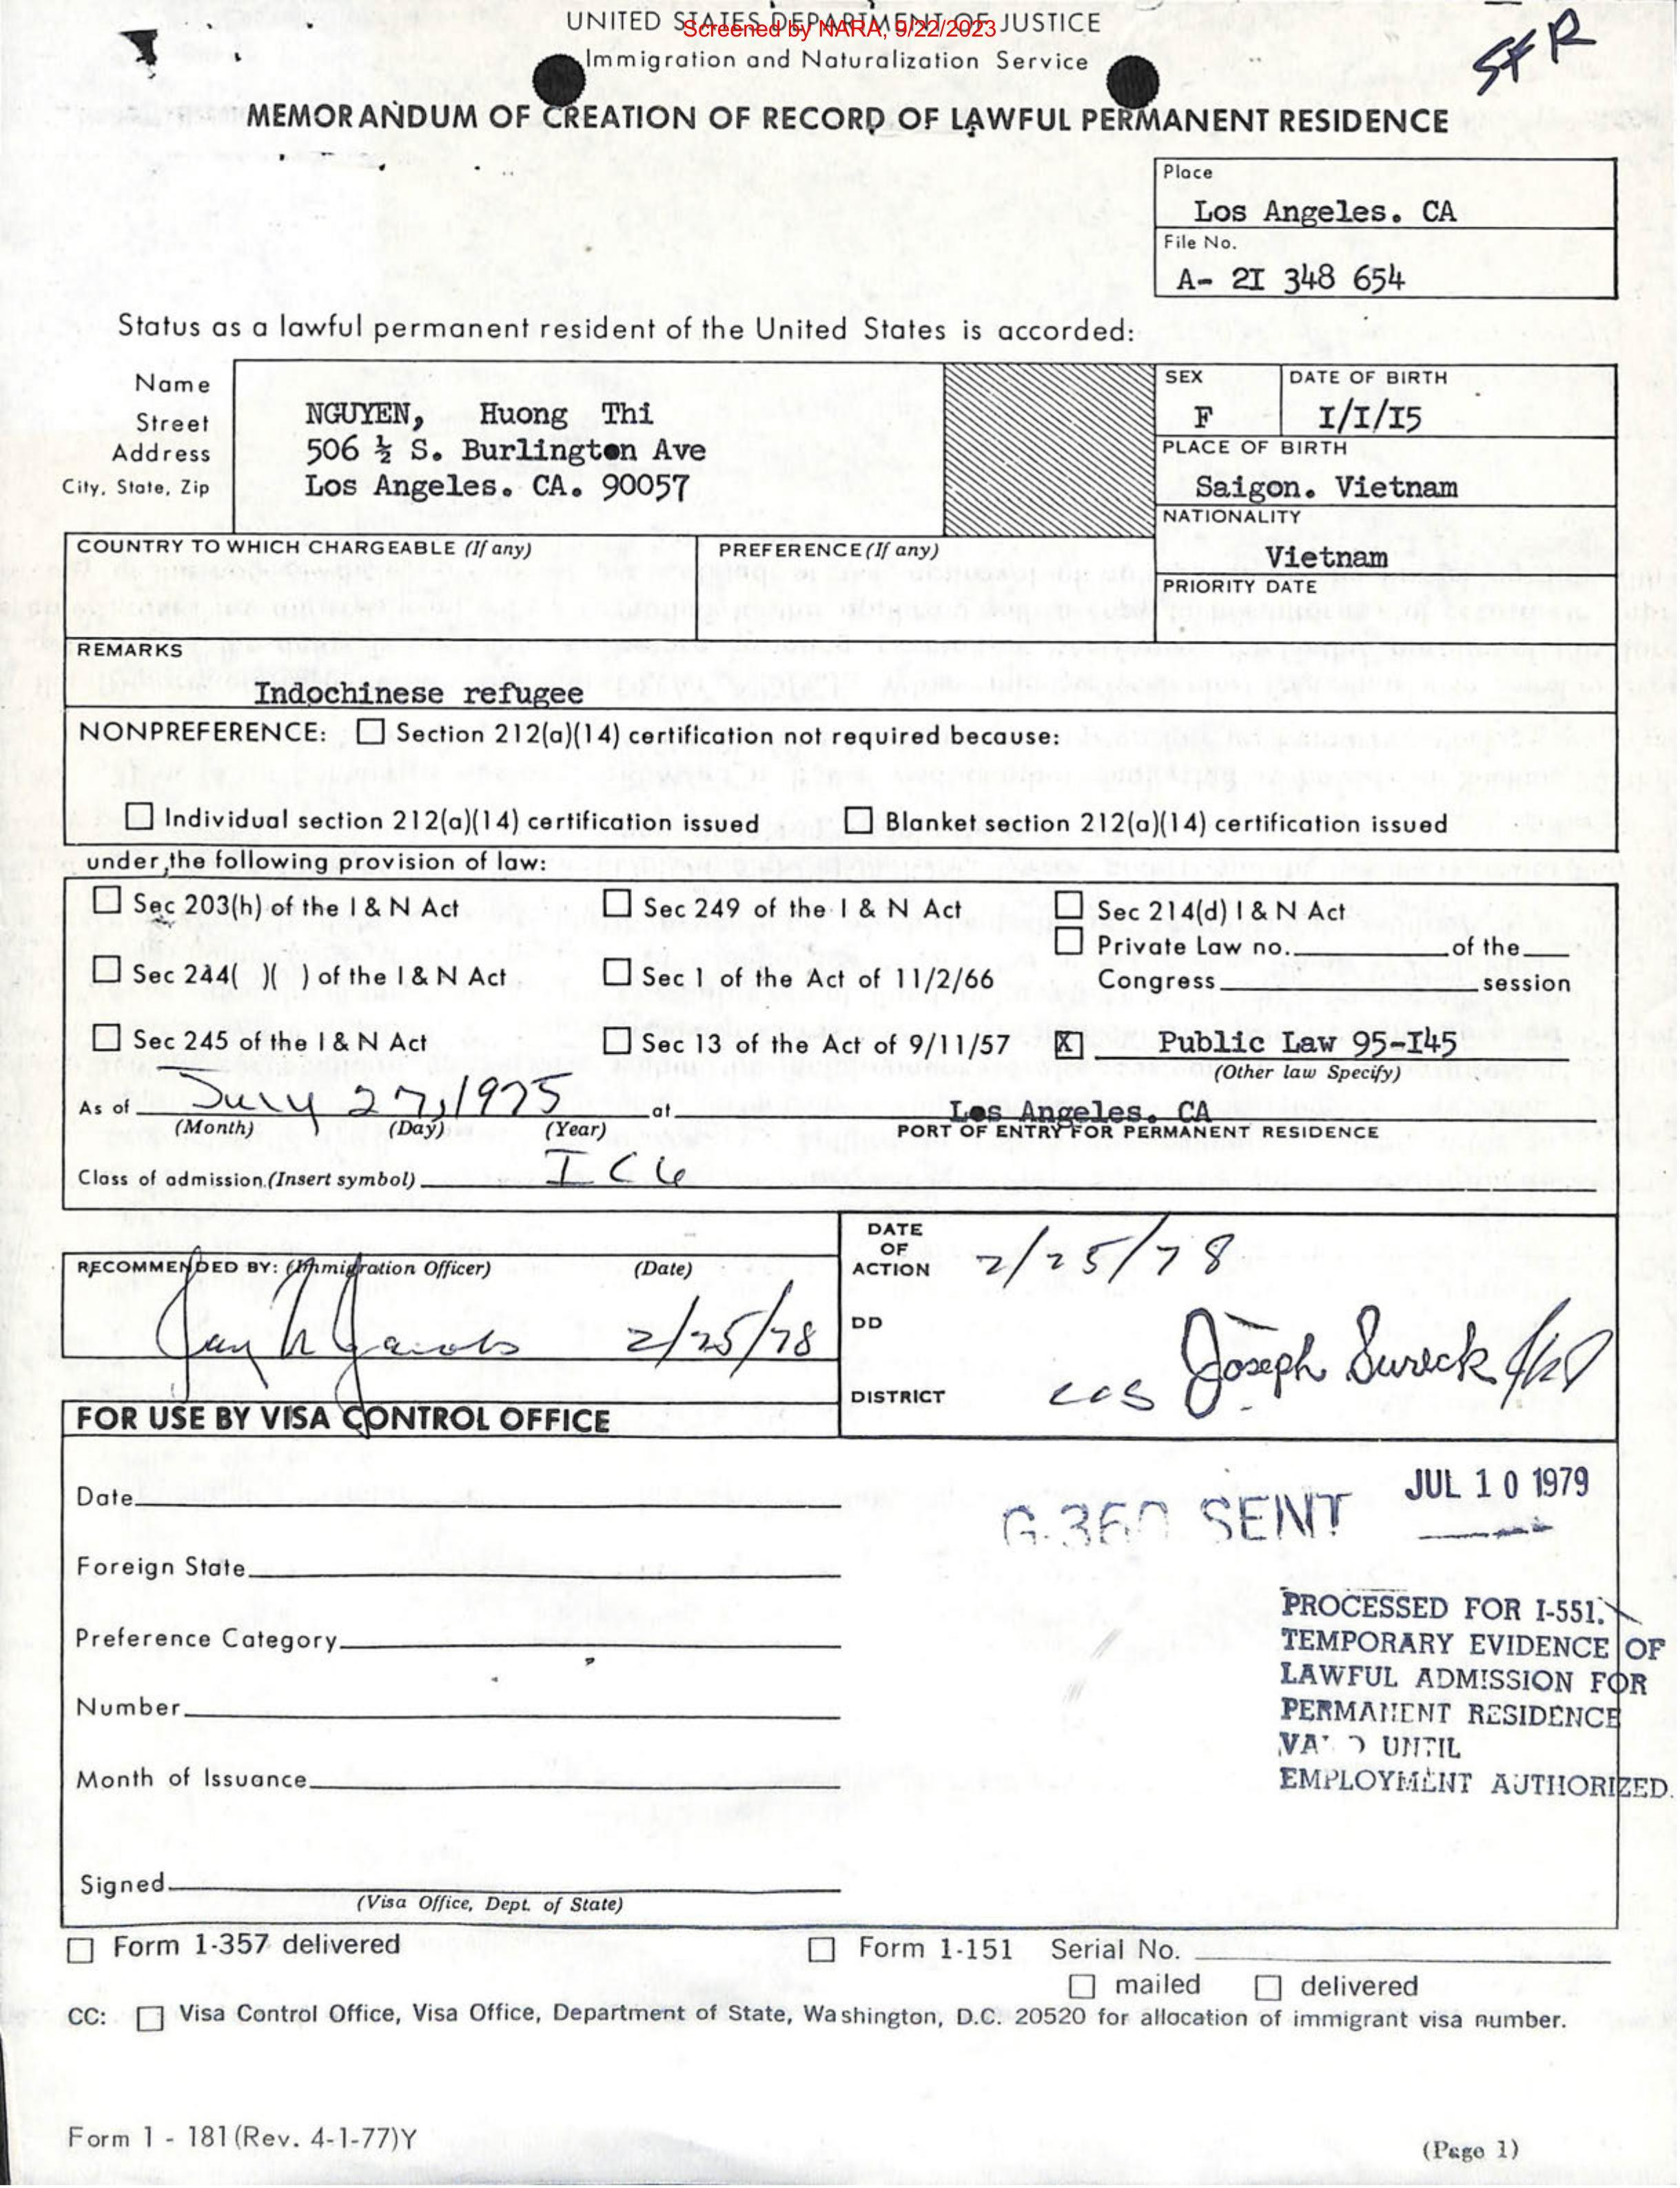 UNITED STATES DEPARTMENT OF JUSTICE
Screened by NARA, 9/22/2023
SFR
Immigration and Naturalization Service
MEMORANDUM OF CREATION OF RECORD OF LAWFUL PERMANENT RESIDENCE
Place
Los Angeles. CA
File No.
A- 2I 348 654
Status as a lawful permanent resident of the United States is accorded:
Name
Street
Address
City, State, Zip
NGUYEN, Huong Thi
506 ½ S. Burlington Ave
Los Angeles. CA. 90057
SEX
F
DATE OF BIRTH
I/I/I5
PLACE OF BIRTH
Saigon. Vietnam
NATIONALITY
Vietnam
COUNTRY TO WHICH CHARGEABLE (If any)
PREFERENCE (If any)
PRIORITY DATE
REMARKS
Indochinese refugee
NONPREFERENCE: ☐ Section 212(a)(14) certification not required because:
☐ Individual section 212(a)(14) certification issued ☐ Blanket section 212(a)(14) certification issued
under the following provision of law:
☐ Sec 203(h) of the I & N Act ☐ Sec 249 of the I & N Act ☐ Sec 214(d) I & N Act
☐ Private Law no. of the
☐ Sec 244( )( ) of the I & N Act ☐ Sec 1 of the Act of 11/2/66 Congress session
☐ Sec 245 of the I & N Act ☐ Sec 13 of the Act of 9/11/57 X Public Law 95-I45
(Other law Specify)
As of July 27, 1975 at Los Angeles. CA
(Month) (Day) (Year) PORT OF ENTRY FOR PERMANENT RESIDENCE
Class of admission (Insert symbol) IC6
RECOMMENDED BY: (Immigration Officer) (Date)
2/25/78
DATE OF ACTION 2/25/78
DD Joseph Sureck
DISTRICT LOS
FOR USE BY VISA CONTROL OFFICE
Date
Foreign State
Preference Category
Number
Month of Issuance
Signed
(Visa Office, Dept. of State)
G-360 SENT JUL 10 1979
PROCESSED FOR I-551.
TEMPORARY EVIDENCE OF
LAWFUL ADMISSION FOR
PERMANENT RESIDENCE
VALID UNTIL
EMPLOYMENT AUTHORIZED.
☐ Form 1-357 delivered ☐ Form 1-151 Serial No.
☐ mailed ☐ delivered
CC: ☐ Visa Control Office, Visa Office, Department of State, Washington, D.C. 20520 for allocation of immigrant visa number.
Form 1 - 181 (Rev. 4-1-77)Y
(Page 1)